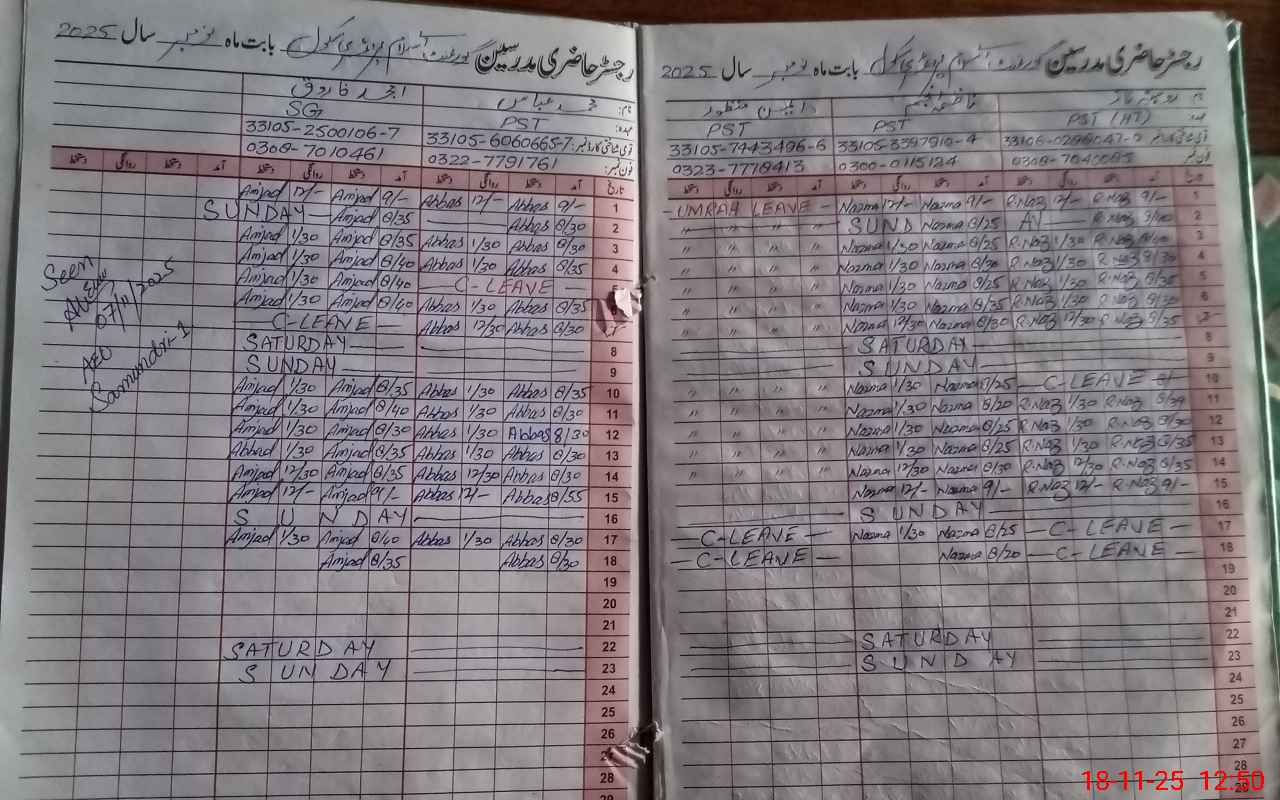 رجسٹر حاضری مدرسین گورنمنٹ اسلام پرائمری سکول بابت ماہ نومبر سال 2025
نام:
عہدہ: PST (HT) PST PST
33105-7443496-6 33105-3397910-4
فون نمبر: 0323-7778413 0300-0115124
تاریخ آمد دستخط روانگی دستخط آمد دستخط روانگی دستخط آمد دستخط روانگی دستخط
UMRAH LEAVE Nazma 12/- Nazma 9/- R.Naz 12/- R.Naz 9/- 1
" " " " SUND Nazma 8/25 AY R.Naz 2
" " " " Nazma 1/30 Nazma 8/25 R.Naz 1/30 R.Naz 3
" " " " Nazma 1/30 Nazma 8/30 R.Naz 1/30 R.Naz 8/30 4
" " " " Nazma 1/30 Nazma 8/25 R.Naz 1/30 R.Naz 8/35 5
" " " " Nazma 1/30 Nazma 8/25 R.Naz 1/30 R.Naz 8/30 6
" " " " Nazma 12/30 Nazma 8/30 R.Naz 12/30 R.Naz 8/35 7
SATURDAY 8
SUNDAY 9
" " " " Nazma 1/30 Nazma 8/25 C-LEAVE 10
" " " " Nazma 1/30 Nazma 8/20 R.Naz 1/30 R.Naz 11
" " " " Nazma 1/30 Nazma 8/25 R.Naz 1/30 R.Naz 8/30 12
" " " " Nazma 1/30 Nazma 8/25 R.Naz 1/30 R.Naz 8/35 13
" " " " Nazma 12/30 Nazma 8/30 R.Naz 12/30 R.Naz 8/35 14
Nazma 12/- Nazma 9/- R.Naz 12/- R.Naz 9/- 15
SUNDAY 16
C-LEAVE Nazma 1/30 Nazma 8/25 C-LEAVE 17
C-LEAVE Nazma 8/20 C-LEAVE 18
19
20
21
SATURDAY 22
SUNDAY 23
24
25
26
27
28
رجسٹر حاضری مدرسین گورنمنٹ اسلام پرائمری سکول بابت ماہ نومبر سال 2025
نام: محمد عباس امجد فاروق
عہدہ: PST SG
33105-2500106-7 33105-6060665-7
فون نمبر: 0308-7010461 0322-7791761
تاریخ آمد دستخط روانگی دستخط آمد دستخط روانگی دستخط آمد دستخط روانگی دستخط
Amjad 12/- Amjad 9/- Abbas 12/- Abbas 9/- 1
SUNDAY Amjad 8/35 Abbas 8/30 2
Amjad 1/30 Amjad 8/35 Abbas 1/30 Abbas 8/30 3
Amjad 1/30 Amjad 8/40 Abbas 1/30 Abbas 8/35 4
Amjad 1/30 Amjad 8/40 C-LEAVE 5
Amjad 1/30 Amjad 8/40 Abbas 1/30 Abbas 8/35
C-LEAVE Abbas 12/30 Abbas 8/30 7
SATURDAY 8
SUNDAY 9
Amjad 1/30 Amjad 8/35 Abbas 1/30 Abbas 8/35 10
Amjad 1/30 Amjad 8/40 Abbas 1/30 Abbas 8/30 11
Amjad 1/30 Amjad 8/30 Abbas 1/30 Abbas 8/30 12
Abbad 1/30 Amjad 8/35 Abbas 1/30 Abbas 8/30 13
Amjad 12/30 Amjad 8/35 Abbas 12/30 Abbas 8/30 14
Amjad 12/- Amjad 9/- Abbas 12/- Abbas 8/55 15
SUNDAY 16
Amjad 1/30 Amjad 8/40 Abbas 1/30 Abbas 8/30 17
Amjad 8/35 Abbas 8/30 18
19
20
21
SATURDAY 22
SUNDAY 23
24
25
26
27
28
Seen
07/11/2025
AEO
Samundri-1
18-11-25 12:50